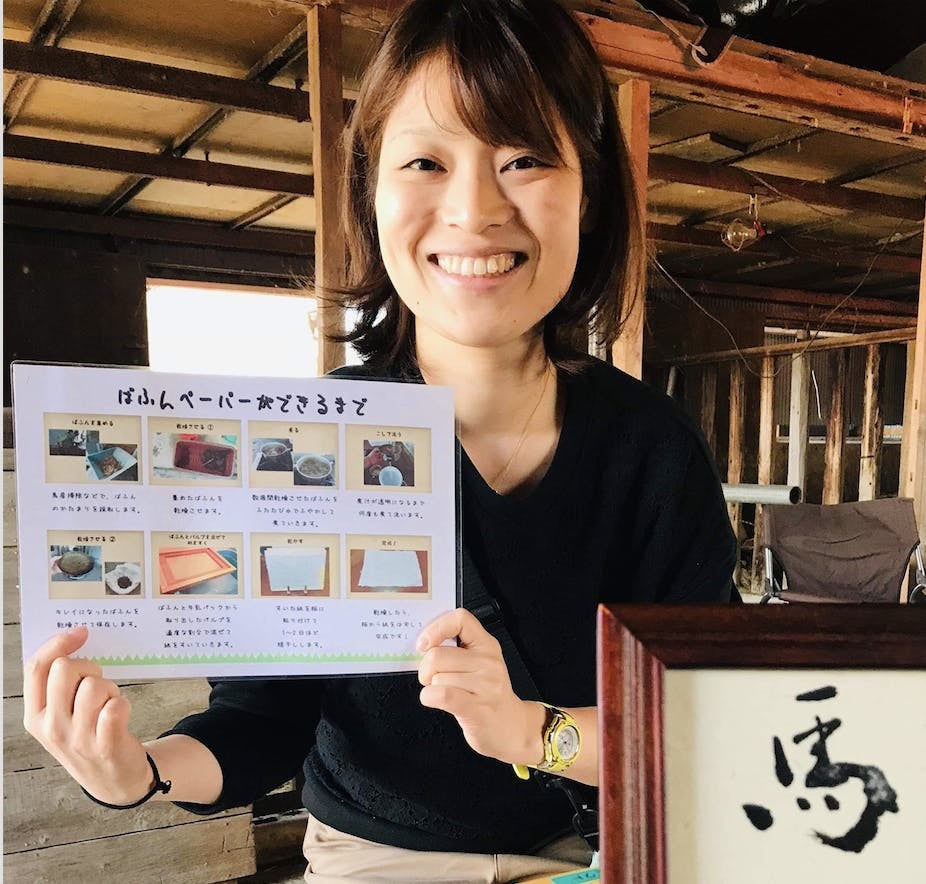 ばふんペーパーができるまで
ばふんを集める
乾燥させる ①
煮る
こして洗う
馬房掃除などで、ばふん
のかたまりを採取します。
集めたばふんを
乾燥させます。
数週間乾燥させたばふんを
ふたたび水でふやかして
煮ていきます。
煮汁が透明になるまで
何度も煮て洗います。
乾燥させる ②
ばふんとパルプを混ぜて
紙をすく
乾かす
完成！
キレイになったばふんを
乾燥させて保存します。
ばふんと牛乳パックから
取り出したパルプを
適度な割合で混ぜて
紙をすいていきます。
すいた紙を板に
貼り付けて
1～2日ほど
陰干しします。
乾燥したら、
板から紙をはがして
完成です！
馬